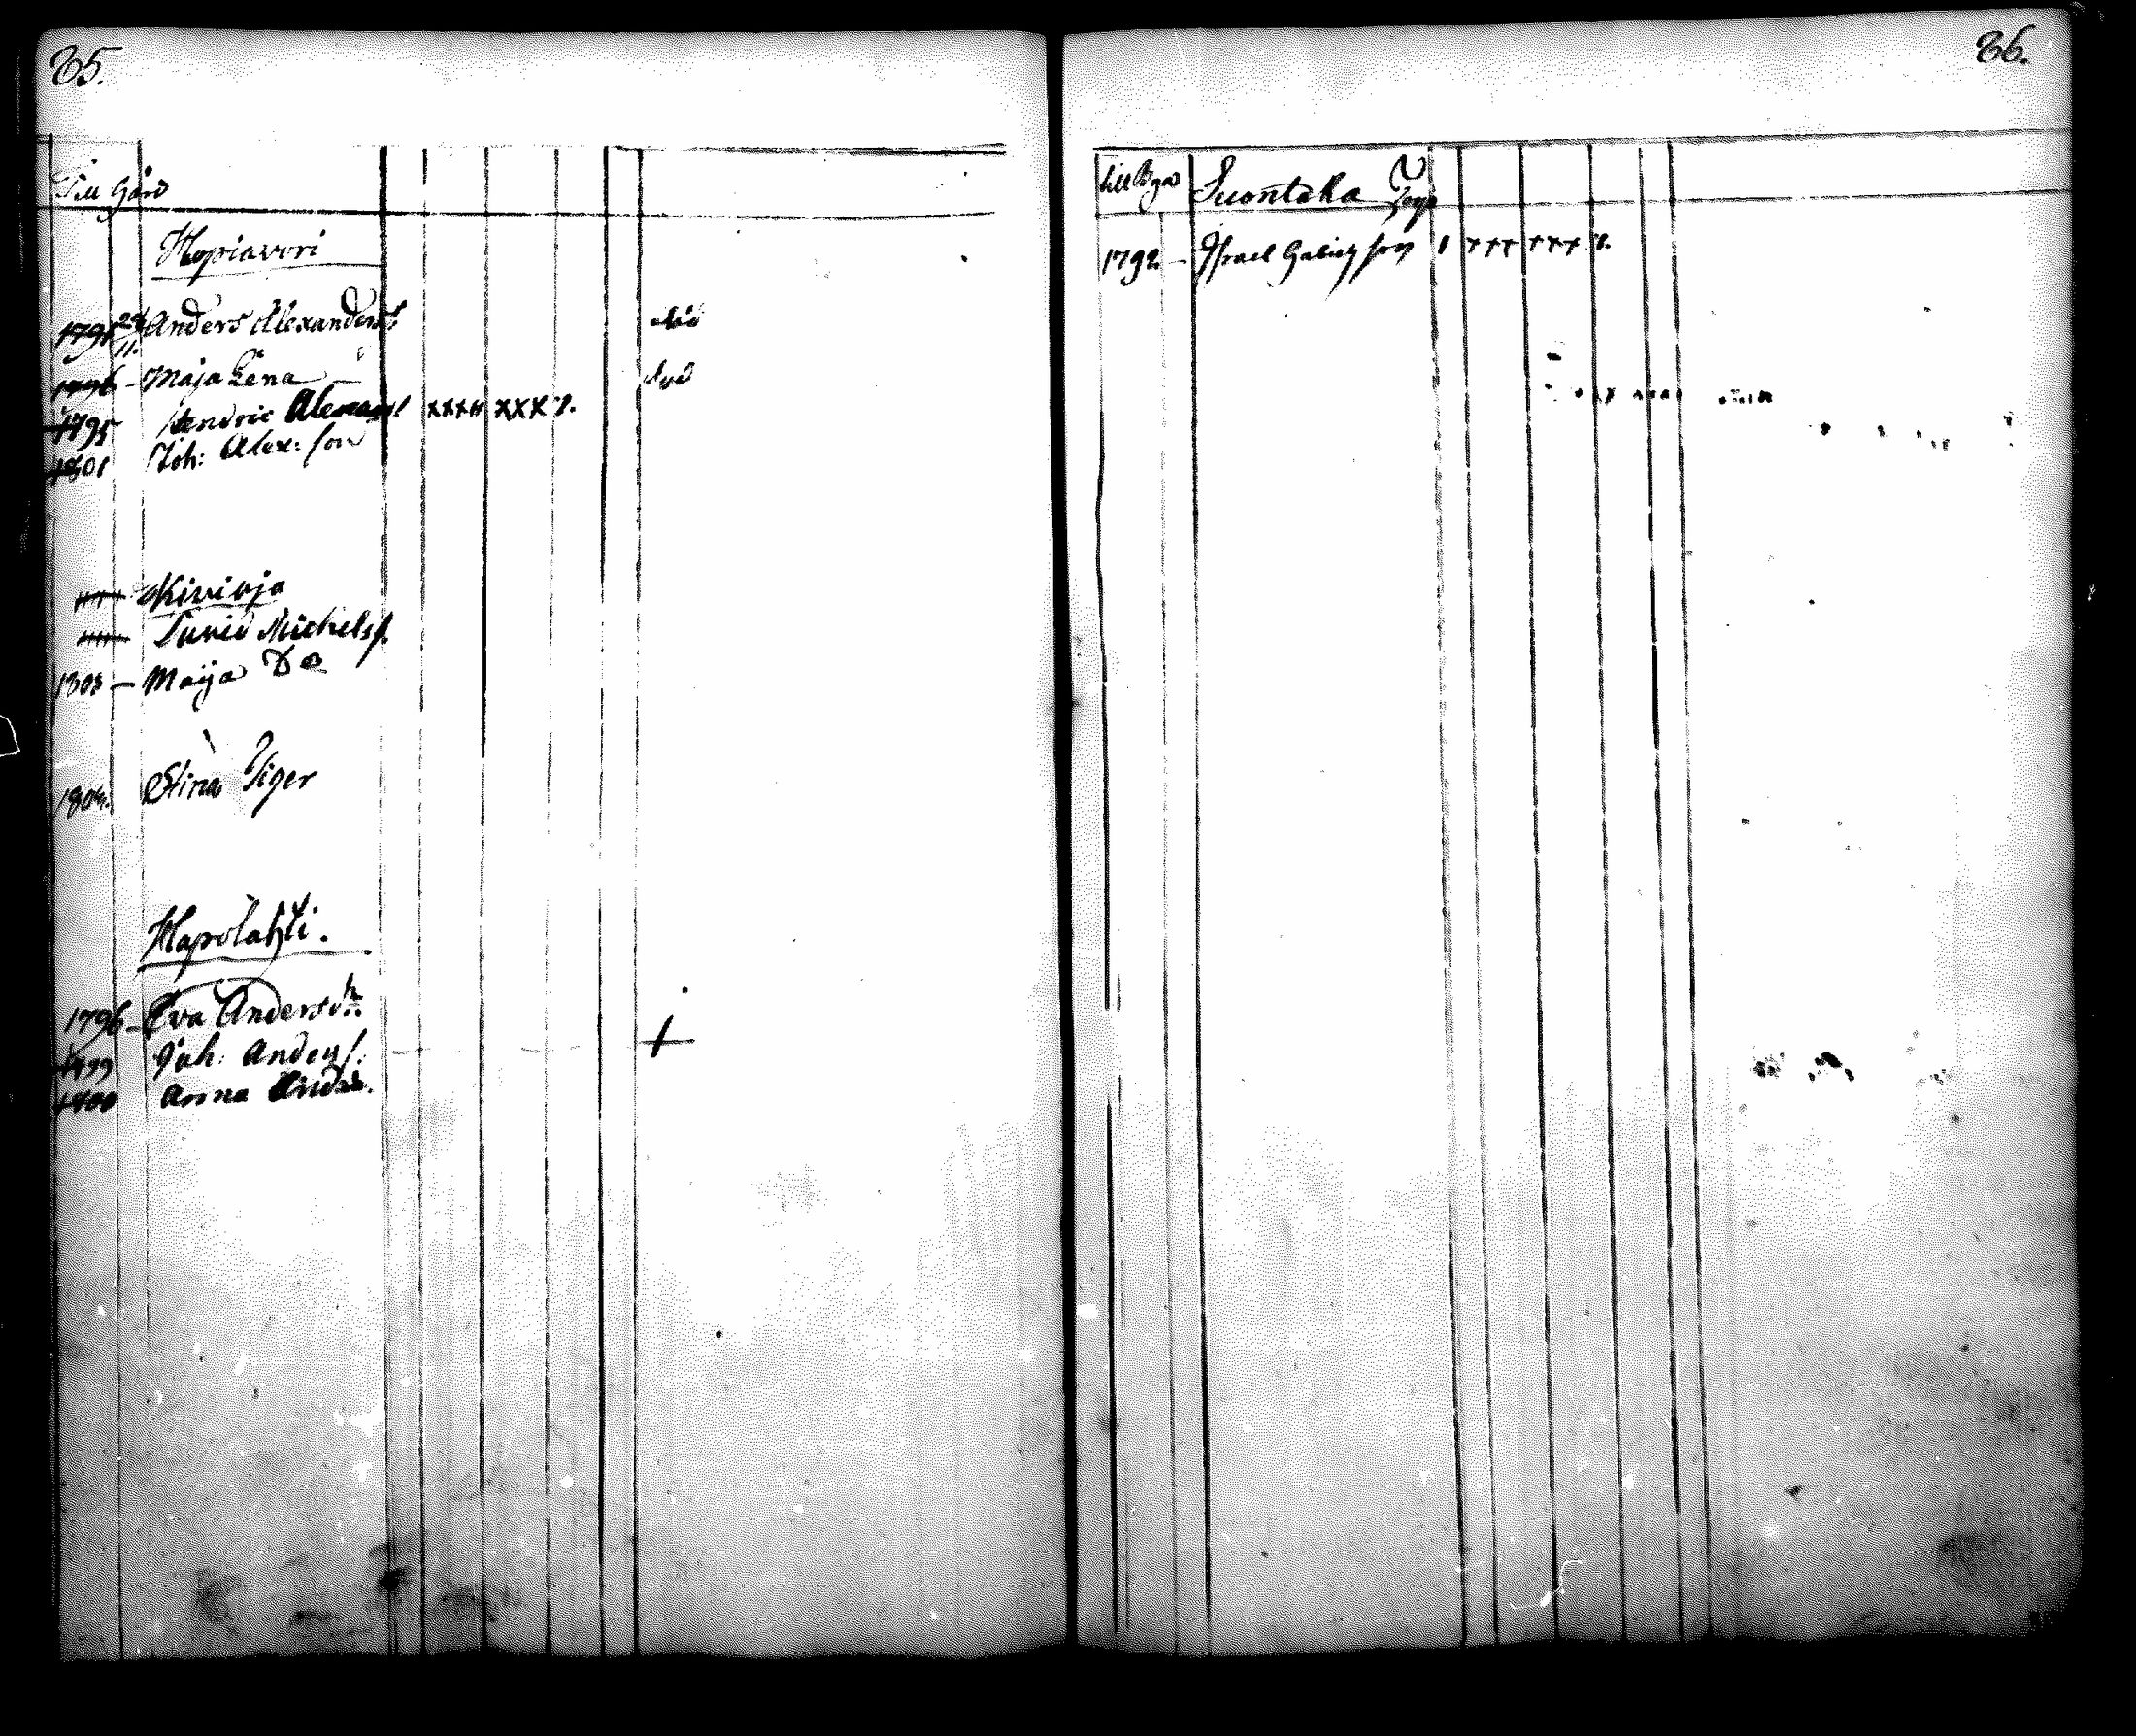 85.
Till Gård
Hopiavori
1795 24/11. Anders Alexanders
död
1796 - Maja Lena
död
1795 Hendric Alexand xxxx xxx
1801 Joh: Alex: son
Kivioja
David Michels s.
1803 - Maija Do
1804. Stina Tiger
Hapolahti.
1796 - Eva Anders dr.
1799 Joh: Anders s. +
1800 Anna Anders
86.
till Byn Suontaka
1792 - Israel son xxx xxx